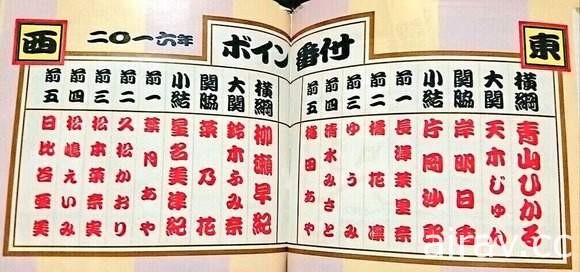 東
ボイン番付
二〇一六年
西
横綱 青山ひかる
大関 天木じゅん
関脇 岸明日香
小結 片岡沙耶
前一 長澤茉里奈
前二 橘花凛
前三 ゆうみ
前四 清水みさと
前五 田あや
横綱 柳瀬早紀
大関 鈴木ふみ奈
関脇 菜乃花
小結 星名美津紀
前一 葉月あや
前二 久松かおり
前三 松本菜奈実
前四 松嶋えいみ
前五 日比谷亜美
airav.cc